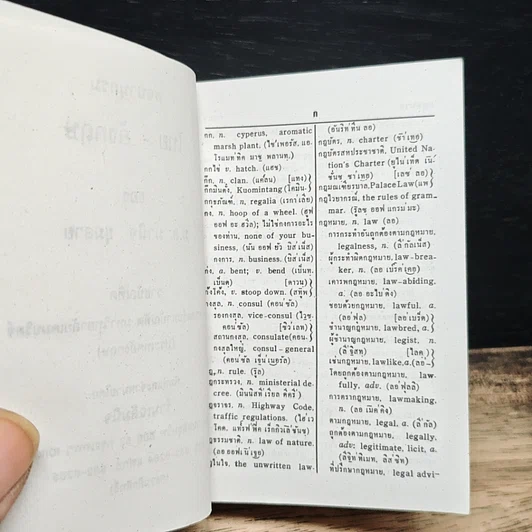 ก
กก, n. cyperus, aromatic
marsh plant. (ไซ่เพอรัส, แอ.
โรแมทติค มาช พลานทฺ.)
กกไข่ v. hatch. (แฮช)
n. clan. (แคลน) [แทง)}
Kuomintang (โคมิน.
n. regalia (เรกาเลีย)
n. hoop of a wheel. (ฮูฟ
ออฟ อะ ฮวีล); ไม่ใช่กงการอะไร
ของท่าน, none of your bu-
siness, (นัน ออฟ ยัว บิสเน็ส)
n. business. (บิสเน็ส)
a. bent; v. bend (เบ็นท.
เบ็นด) (ดาวน)}
v. stoop down. (สทู๊พ)
n. consul (คอนซัล)
vice-consul (ไวซ.
คอนซัล) [ซิวเลท)
สถานกงสุล, consulate (คอน.
กงสุลใหญ่, consul-general
(คอนซัล เจ็นเนอรัล)
กฎ, n. rule. (รูล)
กฎกระทรวง, n. ministerial de-
cree. (มินนิสทีเรียล ดิครี)
n. Highway Code,
traffic regulations. (ไฮเว
โคด, แทร็ฟฟิค เร็กกิวเลชั่นซ)
กฎธรรมชาติ, n. law of nature.
(ลอ ออฟ เนเจอ)
the unwritten law.
(อันริทท็น ลอ)
กฎบัตร, n. charter (ช๊าเทอ)
กฎบัตรสหประชาชาติ, United Na-
tion's Charter (ยูไนเท็ด เนชั่นซ ช๊าเทอ) [ลอ)}
กฎมณเฑียรบาล, Palace Law (แพ
กฎไวยากรณ์, the rules of gram-
mar. (รูลซ ออฟ แกรมม่ะ)
กฎหมาย, n. law (ลอ)
การกระทำอันถูกต้องตามกฎหมาย,
legalness, n. (ลีกัลเน็ส)
ผู้กระทำผิดกฎหมาย, law-brea-
ker, n. (ลอ เบร๊คเคอ)
เคารพกฎหมาย, law-abiding,
a. (ลอ อะไบดิง)
ชอบด้วยกฎหมาย, lawful, a.
(ลอฟุล) [ลอ เบร็ด)}
ชำนาญกฎหมาย, lawbred, a.
ผู้ชำนาญกฎหมาย, legist, n.
(ลีจิสท) [ไลค)}
เช่นกฎหมาย, lawlike, a. (ลอ-
โดยถูกต้องตามกฎหมาย, law-
fully, adv. (ลอฟุลลี)
การตรากฎหมาย, lawmaking,
n. (ลอ เมคคิง)
ตามกฎหมาย, legal, a. (ลีกัล)
ถูกต้องตามกฎหมาย, legally,
adv: legitimate, licit, a.
(ลิจิททิเมท, ลิสซิท)
ที่ปรึกษากฎหมาย, legal advi-